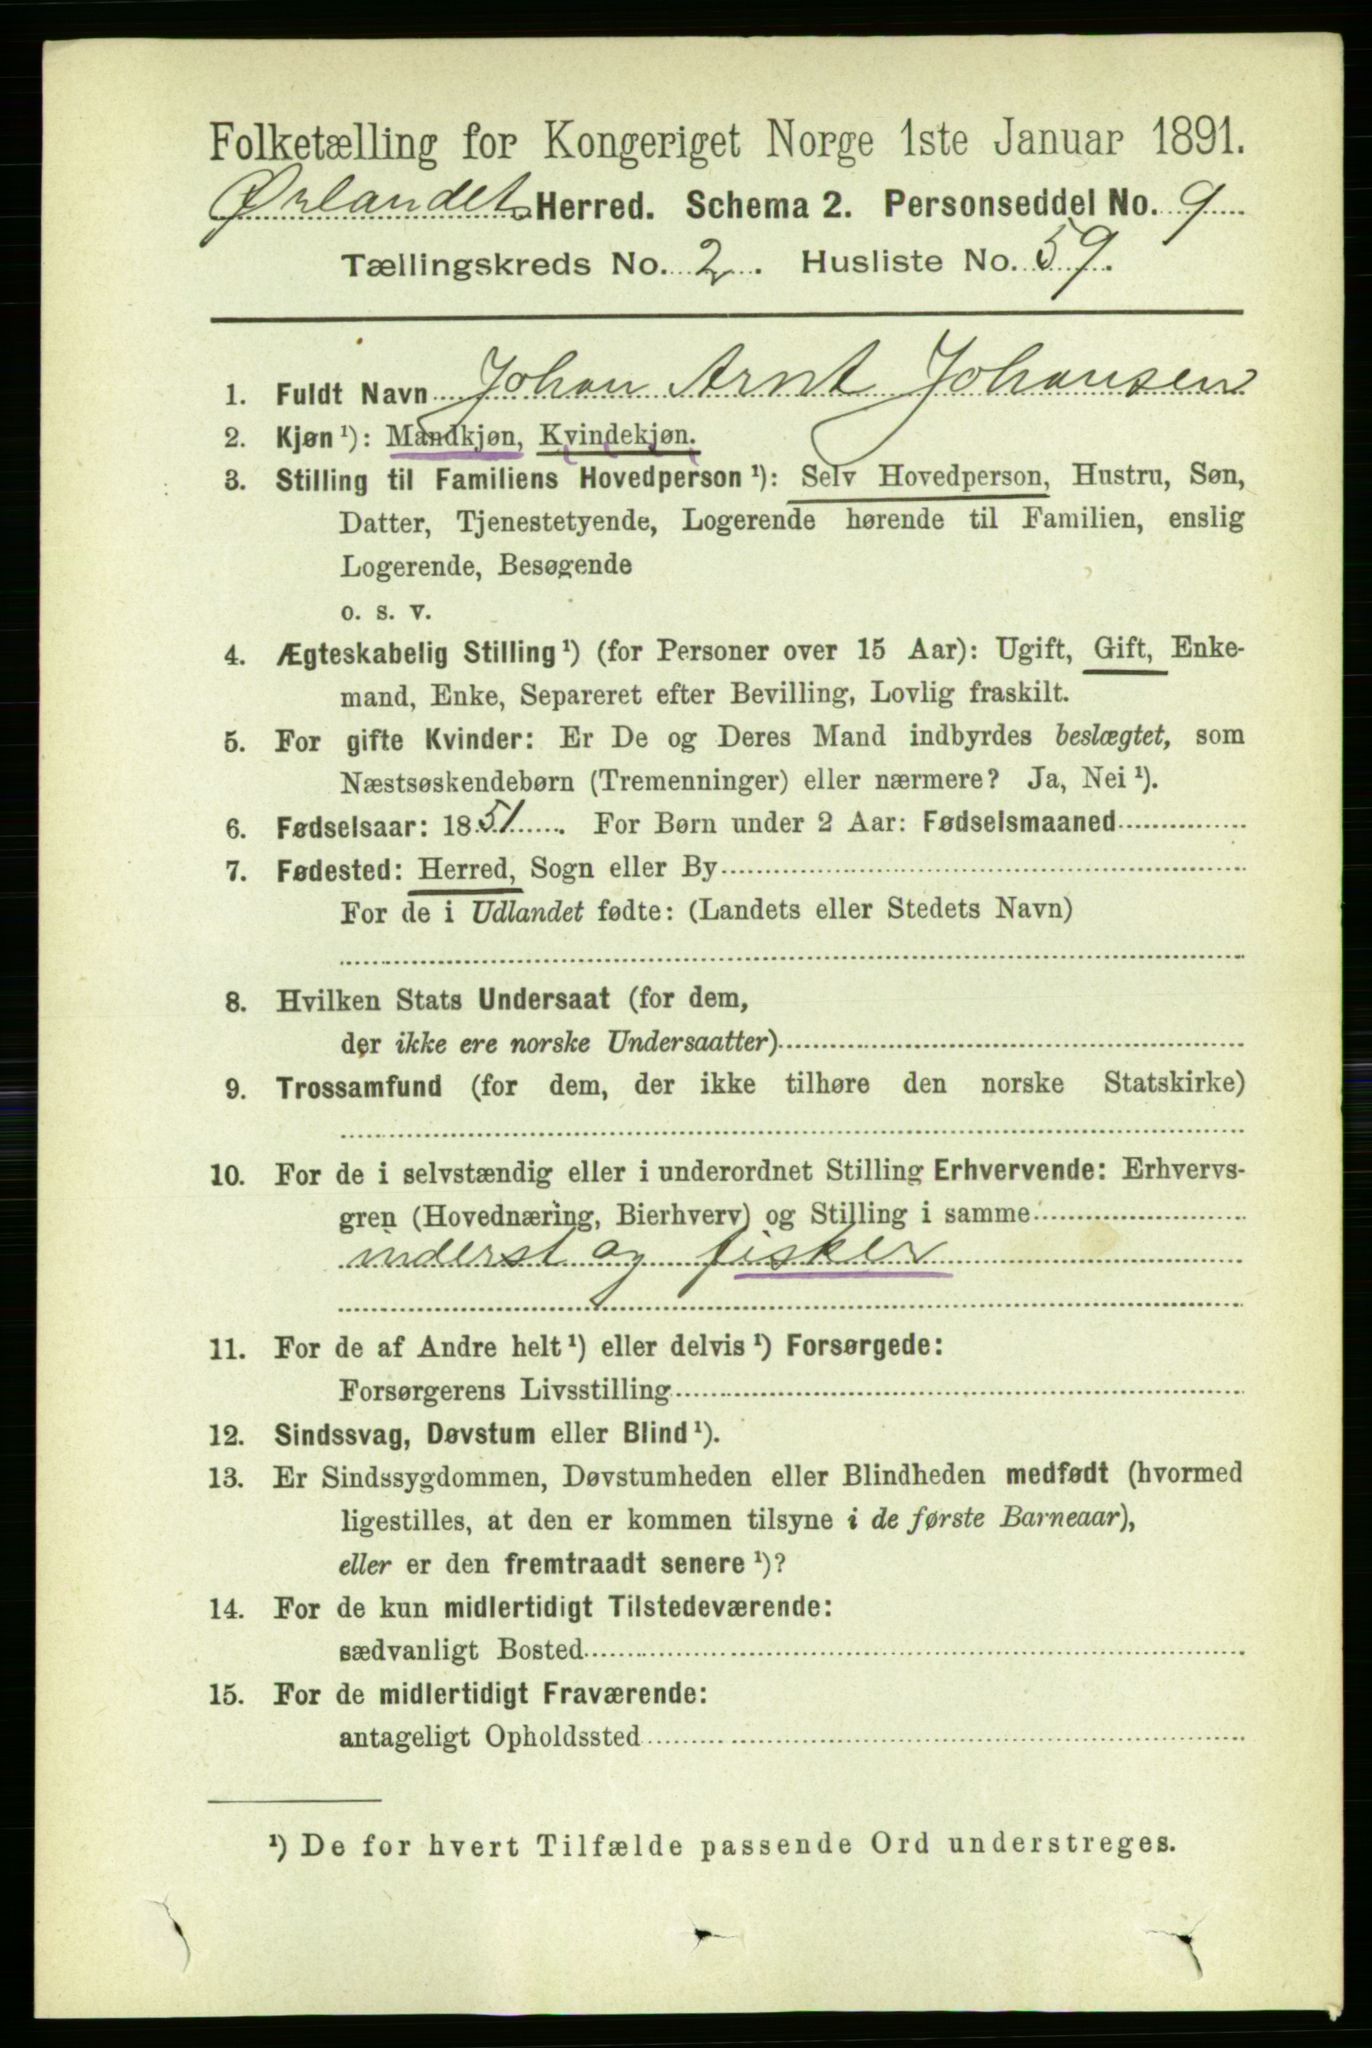 Folketælling for Kongeriget Norge 1ste Januar 1891.
Ørlandet Herred. Schema 2. Personseddel No. 9
Tællingskreds No. 2. Husliste No. 59.
1. Fuldt Navn Johan Arnt Johansen
2. Kjøn¹): Mandkjøn, Kvindekjøn.
3. Stilling til Familiens Hovedperson¹): Selv Hovedperson, Hustru, Søn,
Datter, Tjenestetyende, Logerende hørende til Familien, enslig
Logerende, Besøgende
o. s. v.
4. Ægteskabelig Stilling¹) (for Personer over 15 Aar): Ugift, Gift, Enke-
mand, Enke, Separeret efter Bevilling, Lovlig fraskilt.
5. For gifte Kvinder: Er De og Deres Mand indbyrdes beslægtet, som
Næstsøskendebørn (Tremenninger) eller nærmere? Ja, Nei¹).
6. Fødselsaar: 1851. For Børn under 2 Aar: Fødselsmaaned
7. Fødested: Herred, Sogn eller By
For de i Udlandet fødte: (Landets eller Stedets Navn)
8. Hvilken Stats Undersaat (for dem,
der ikke ere norske Undersaatter)
9. Trossamfund (for dem, der ikke tilhøre den norske Statskirke)
10. For de i selvstændig eller i underordnet Stilling Erhvervende: Erhvervs-
gren (Hovednæring, Bierhverv) og Stilling i samme
inderst og fisker
11. For de af Andre helt¹) eller delvis¹) Forsørgede:
Forsørgerens Livsstilling
12. Sindssvag, Døvstum eller Blind¹).
13. Er Sindssygdommen, Døvstumheden eller Blindheden medfødt (hvormed
ligestilles, at den er kommen tilsyne i de første Barneaar),
eller er den fremtraadt senere¹)?
14. For de kun midlertidigt Tilstedeværende:
sædvanligt Bosted
15. For de midlertidigt Fraværende:
antageligt Opholdssted
¹) De for hvert Tilfælde passende Ord understreges.